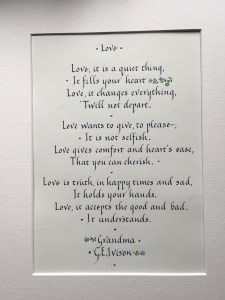 · Love ·
Love, it is a quiet thing,
- It fills your heart
Love, it changes everything,
'Twill not depart.
Love wants to give, to please-,
- It is not selfish.
Love gives comfort and heart's ease,
That you can cherish. -
Love is truth, in happy times and sad,
It holds your hands.
Love, it accepts the good and bad.
- It understands.
Grandma -
- G.E. Ivison